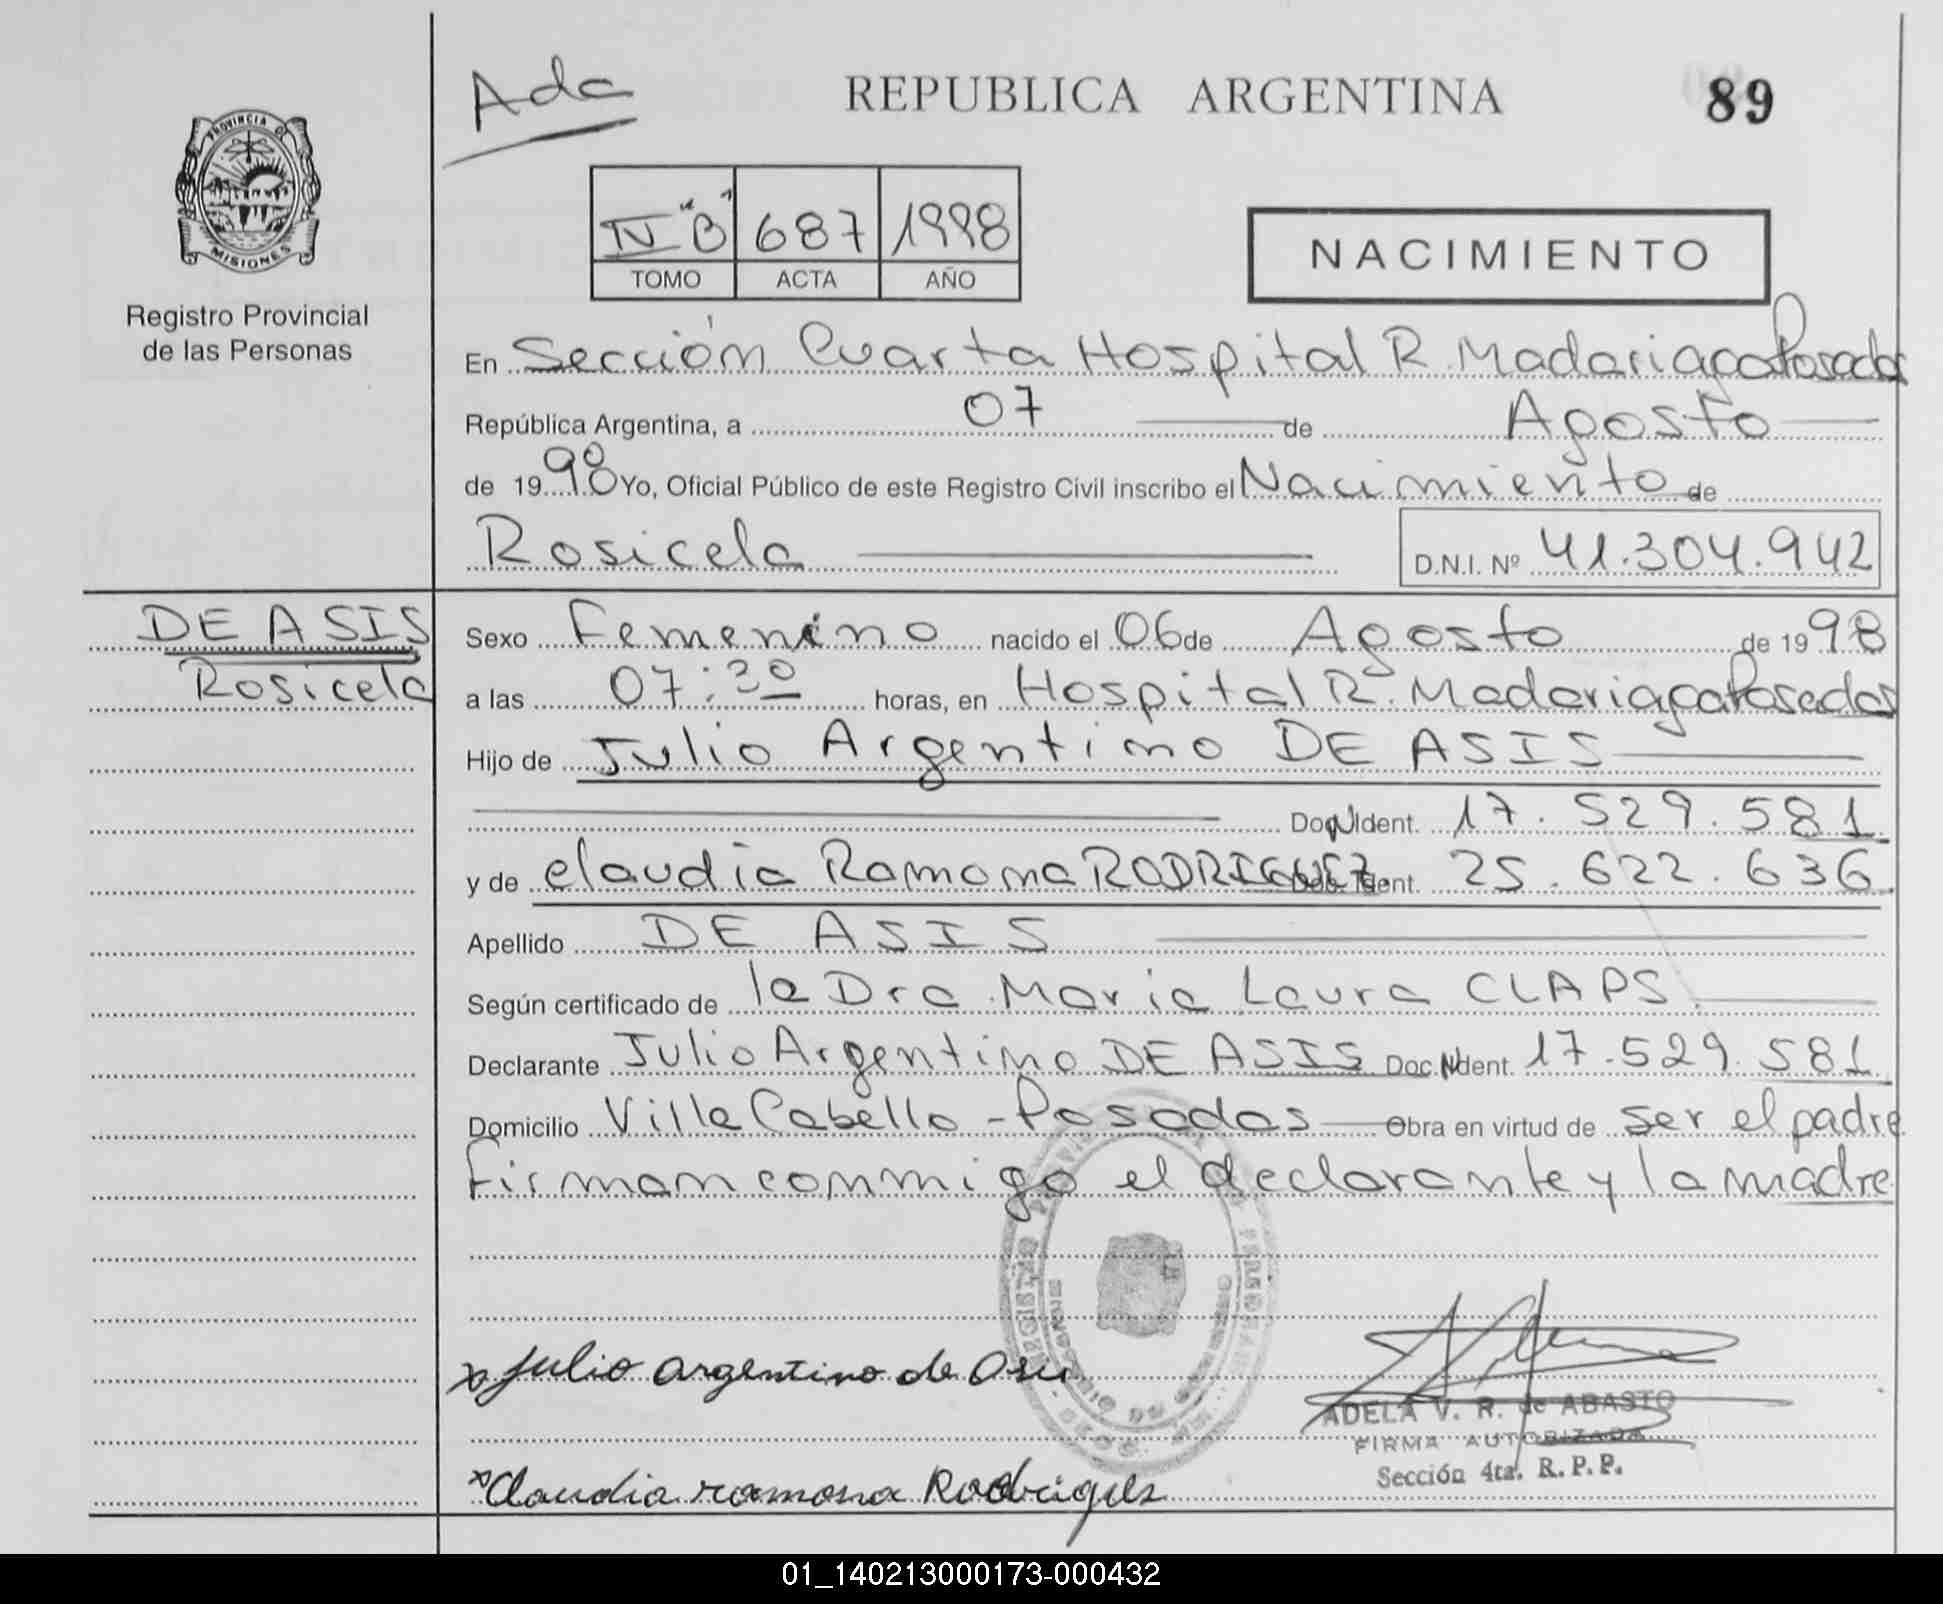 Ada
REPUBLICA ARGENTINA
89
PROVINCIA DE
MISIONES
Registro Provincial
de las Personas
IV "B" 687 1998
TOMO ACTA AÑO
NACIMIENTO
En Sección Cuarta Hospital R. Madariaga Posadas
República Argentina, a 07 de Agosto
de 1998 Yo, Oficial Público de este Registro Civil inscribo el Nacimiento de
Rosicela D.N.I. Nº 41.304.942
DE ASIS
Rosicela
Sexo Femenino nacido el 06 de Agosto de 1998
a las 07:30 horas, en Hospital R. Madariaga Posadas
Hijo de Julio Argentino DE ASIS
Doc. Ident. 17.529.581
y de Claudia Ramona RODRIGUEZ Doc. Ident. 25.622.636
Apellido DE ASIS
Según certificado de la Dra Maria Laura CLAPS.
Declarante Julio Argentino DE ASIS Doc. Ident. 17.529.581
Domicilio Villa Cabello - Posadas Obra en virtud de ser el padre
firman conmigo el declarante y la madre
x Julio argentino de Asis
ADELA V. R. de ABASTO
FIRMA AUTORIZADA
Sección 4ta. R.P.P.
x Claudia ramona Rodrigues
01_140213000173-000432